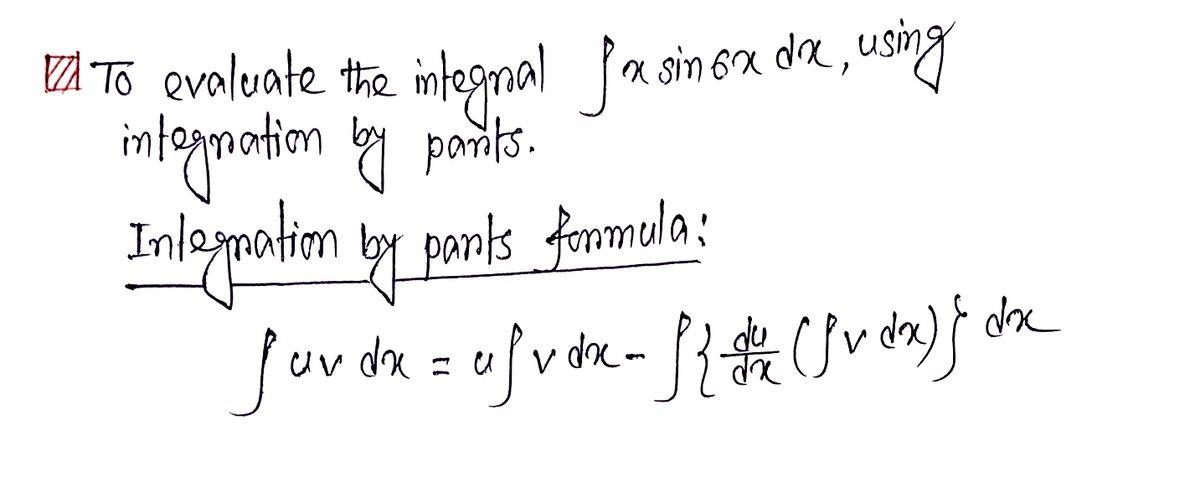 To evaluate the integral ∫ x sin 6x dx, using
integration by parts.
Integration by parts formula:
∫ uv dx = u ∫ v dx - ∫ { du/dx (∫ v dx) } dx